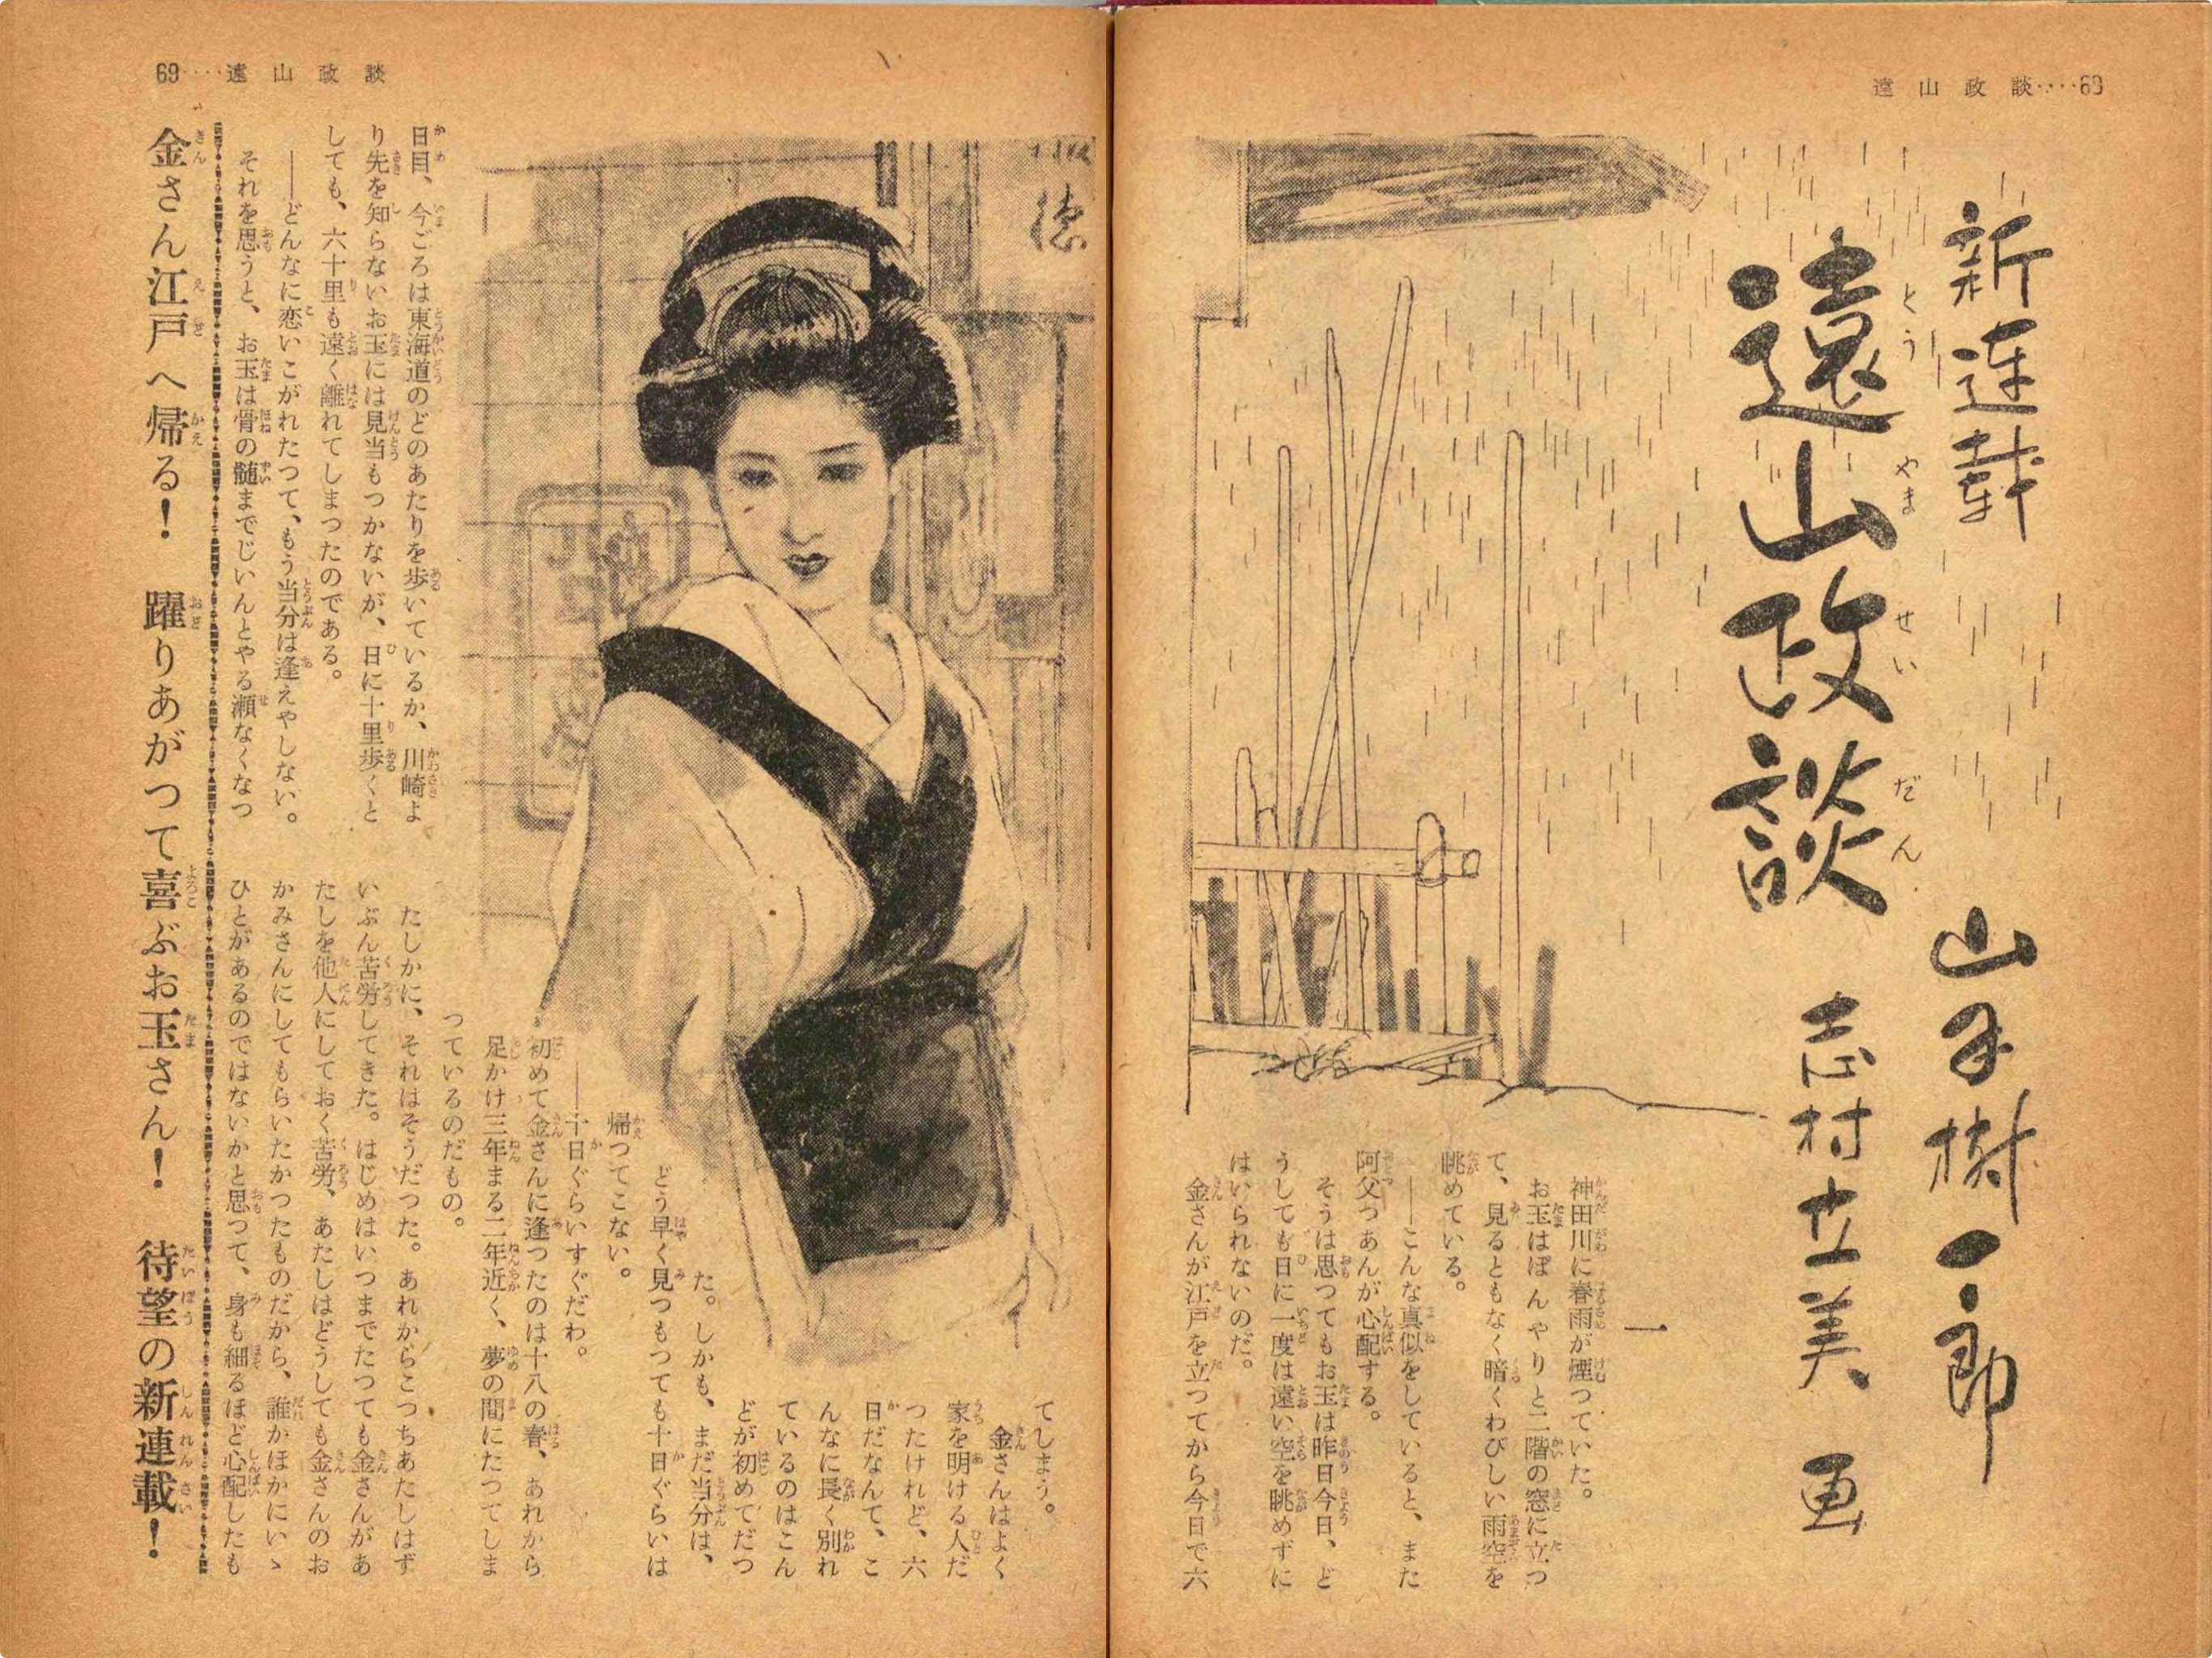 遠山政談‥‥68
新連載
遠山政談
とうやませいだん
山手樹一郎
志村立美 画
一
神田川に春雨が煙つていた。
お玉はぼんやりと二階の窓に立つ
て、見るともなく暗くわびしい雨空を
眺めている。
――こんな真似をしていると、また
阿父つあんが心配する。
そうは思つてもお玉は昨日今日、ど
うしても日に一度は遠い空を眺めずに
はいられないのだ。
金さんが江戸を立つてから今日で六
69‥‥遠山政談
日目、今ごろは東海道のどのあたりを歩いているか、川崎よ
り先を知らないお玉には見当もつかないが、日に十里歩くと
しても、六十里も遠く離れてしまつたのである。
――どんなに恋いこがれたつて、もう当分は逢えやしない。
それを思うと、お玉は骨の髄までじいんとやる瀬なくなつ
てしまう。
金さんはよく
家を明ける人だ
つたけれど、六
日だなんて、こ
んなに長く別れ
ているのはこん
どが初めてだつ
た。しかも、まだ当分は、
どう早く見つもつても十日ぐらいは
帰つてこない。
――十日ぐらいすぐだわ。
初めて金さんに逢つたのは十八の春、あれから
足かけ三年まる二年近く、夢の間にたつてしま
つているのだもの。
たしかに、それはそうだつた。あれからこつちあたしはず
いぶん苦労してきた。はじめはいつまでたつても金さんがあ
たしを他人にしておく苦労、あたしはどうしても金さんのお
かみさんにしてもらいたかつたものだから、誰かほかにいゝ
ひとがあるのではないかと思つて、身も細るほど心配したも
金さん江戸へ帰る！ 躍りあがつて喜ぶお玉さん！ 待望の新連載！
徳